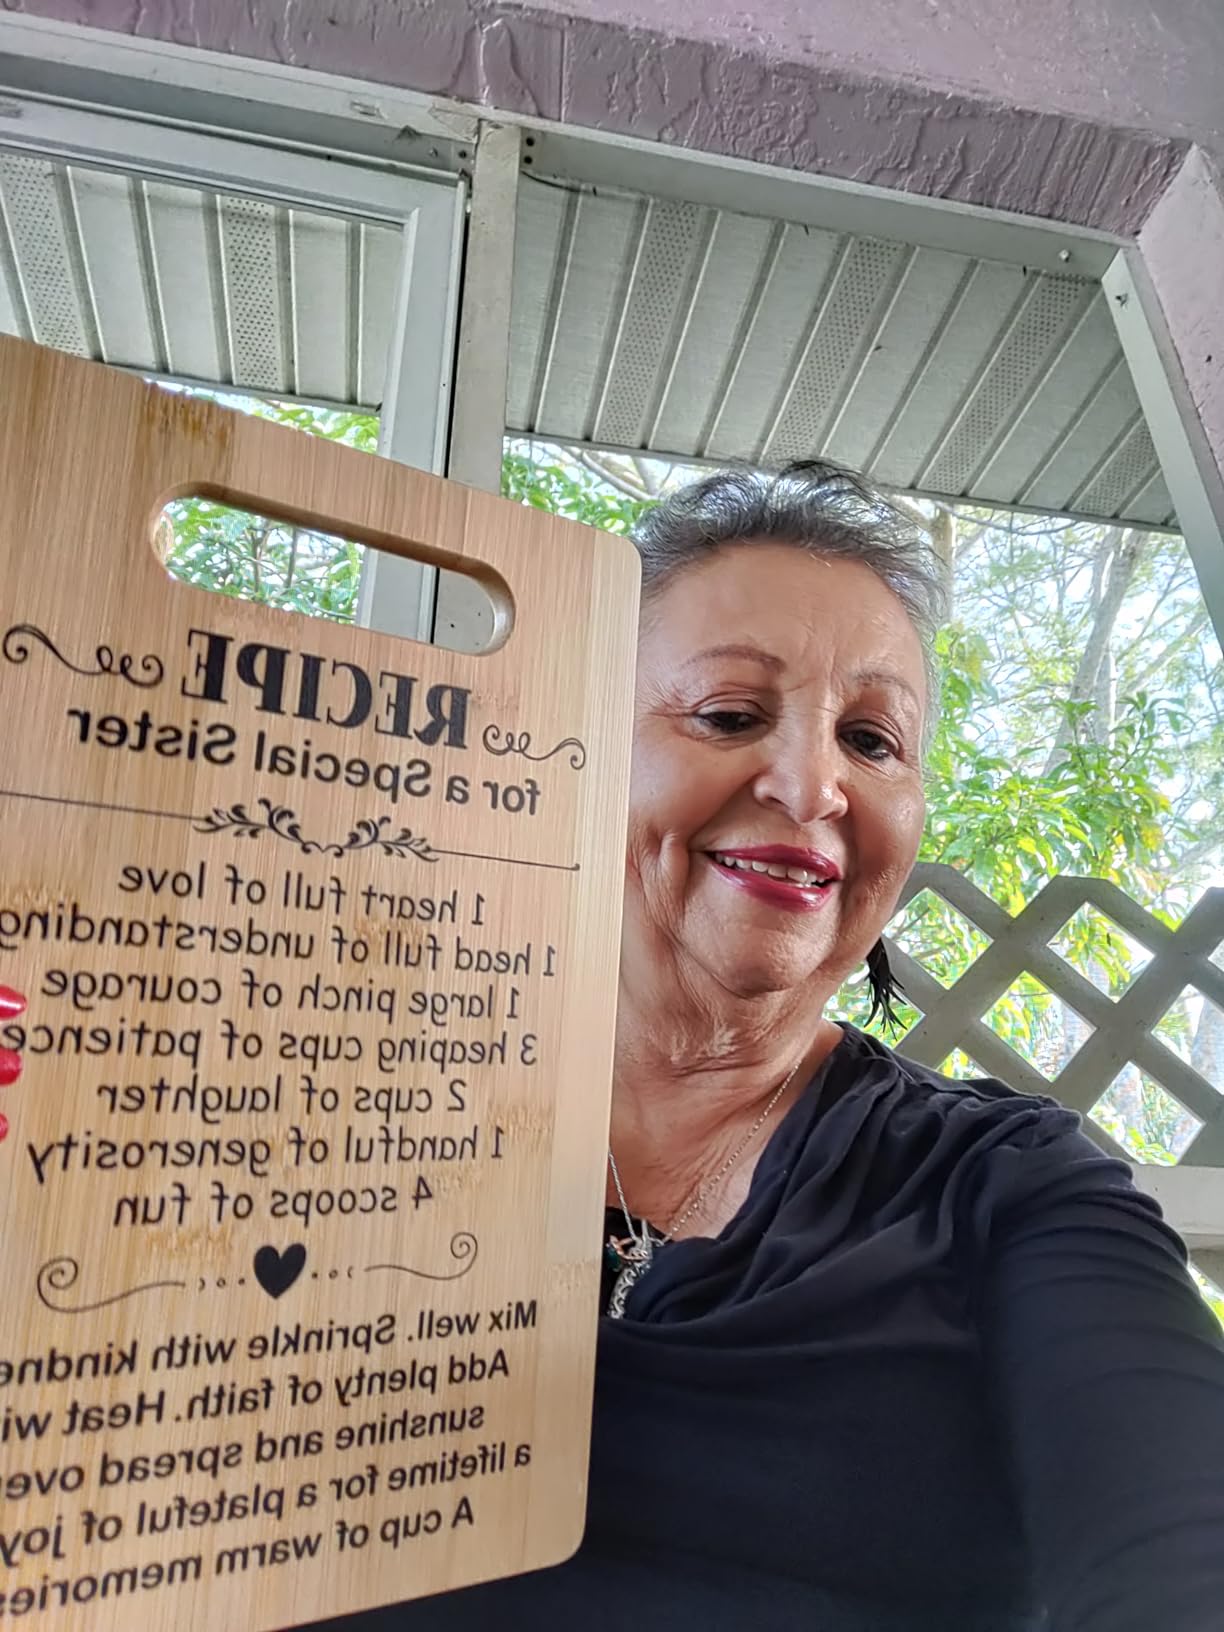 RECIPE
for a Special Sister
1 heart full of love
1 head full of understanding
1 large pinch of courage
3 heaping cups of patience
2 cups of laughter
1 handful of generosity
4 scoops of fun
Mix well. Sprinkle with
Add plenty of faith. Heat
sunshine and spread
a lifetime for a plateful of joy
A cup of warm memories